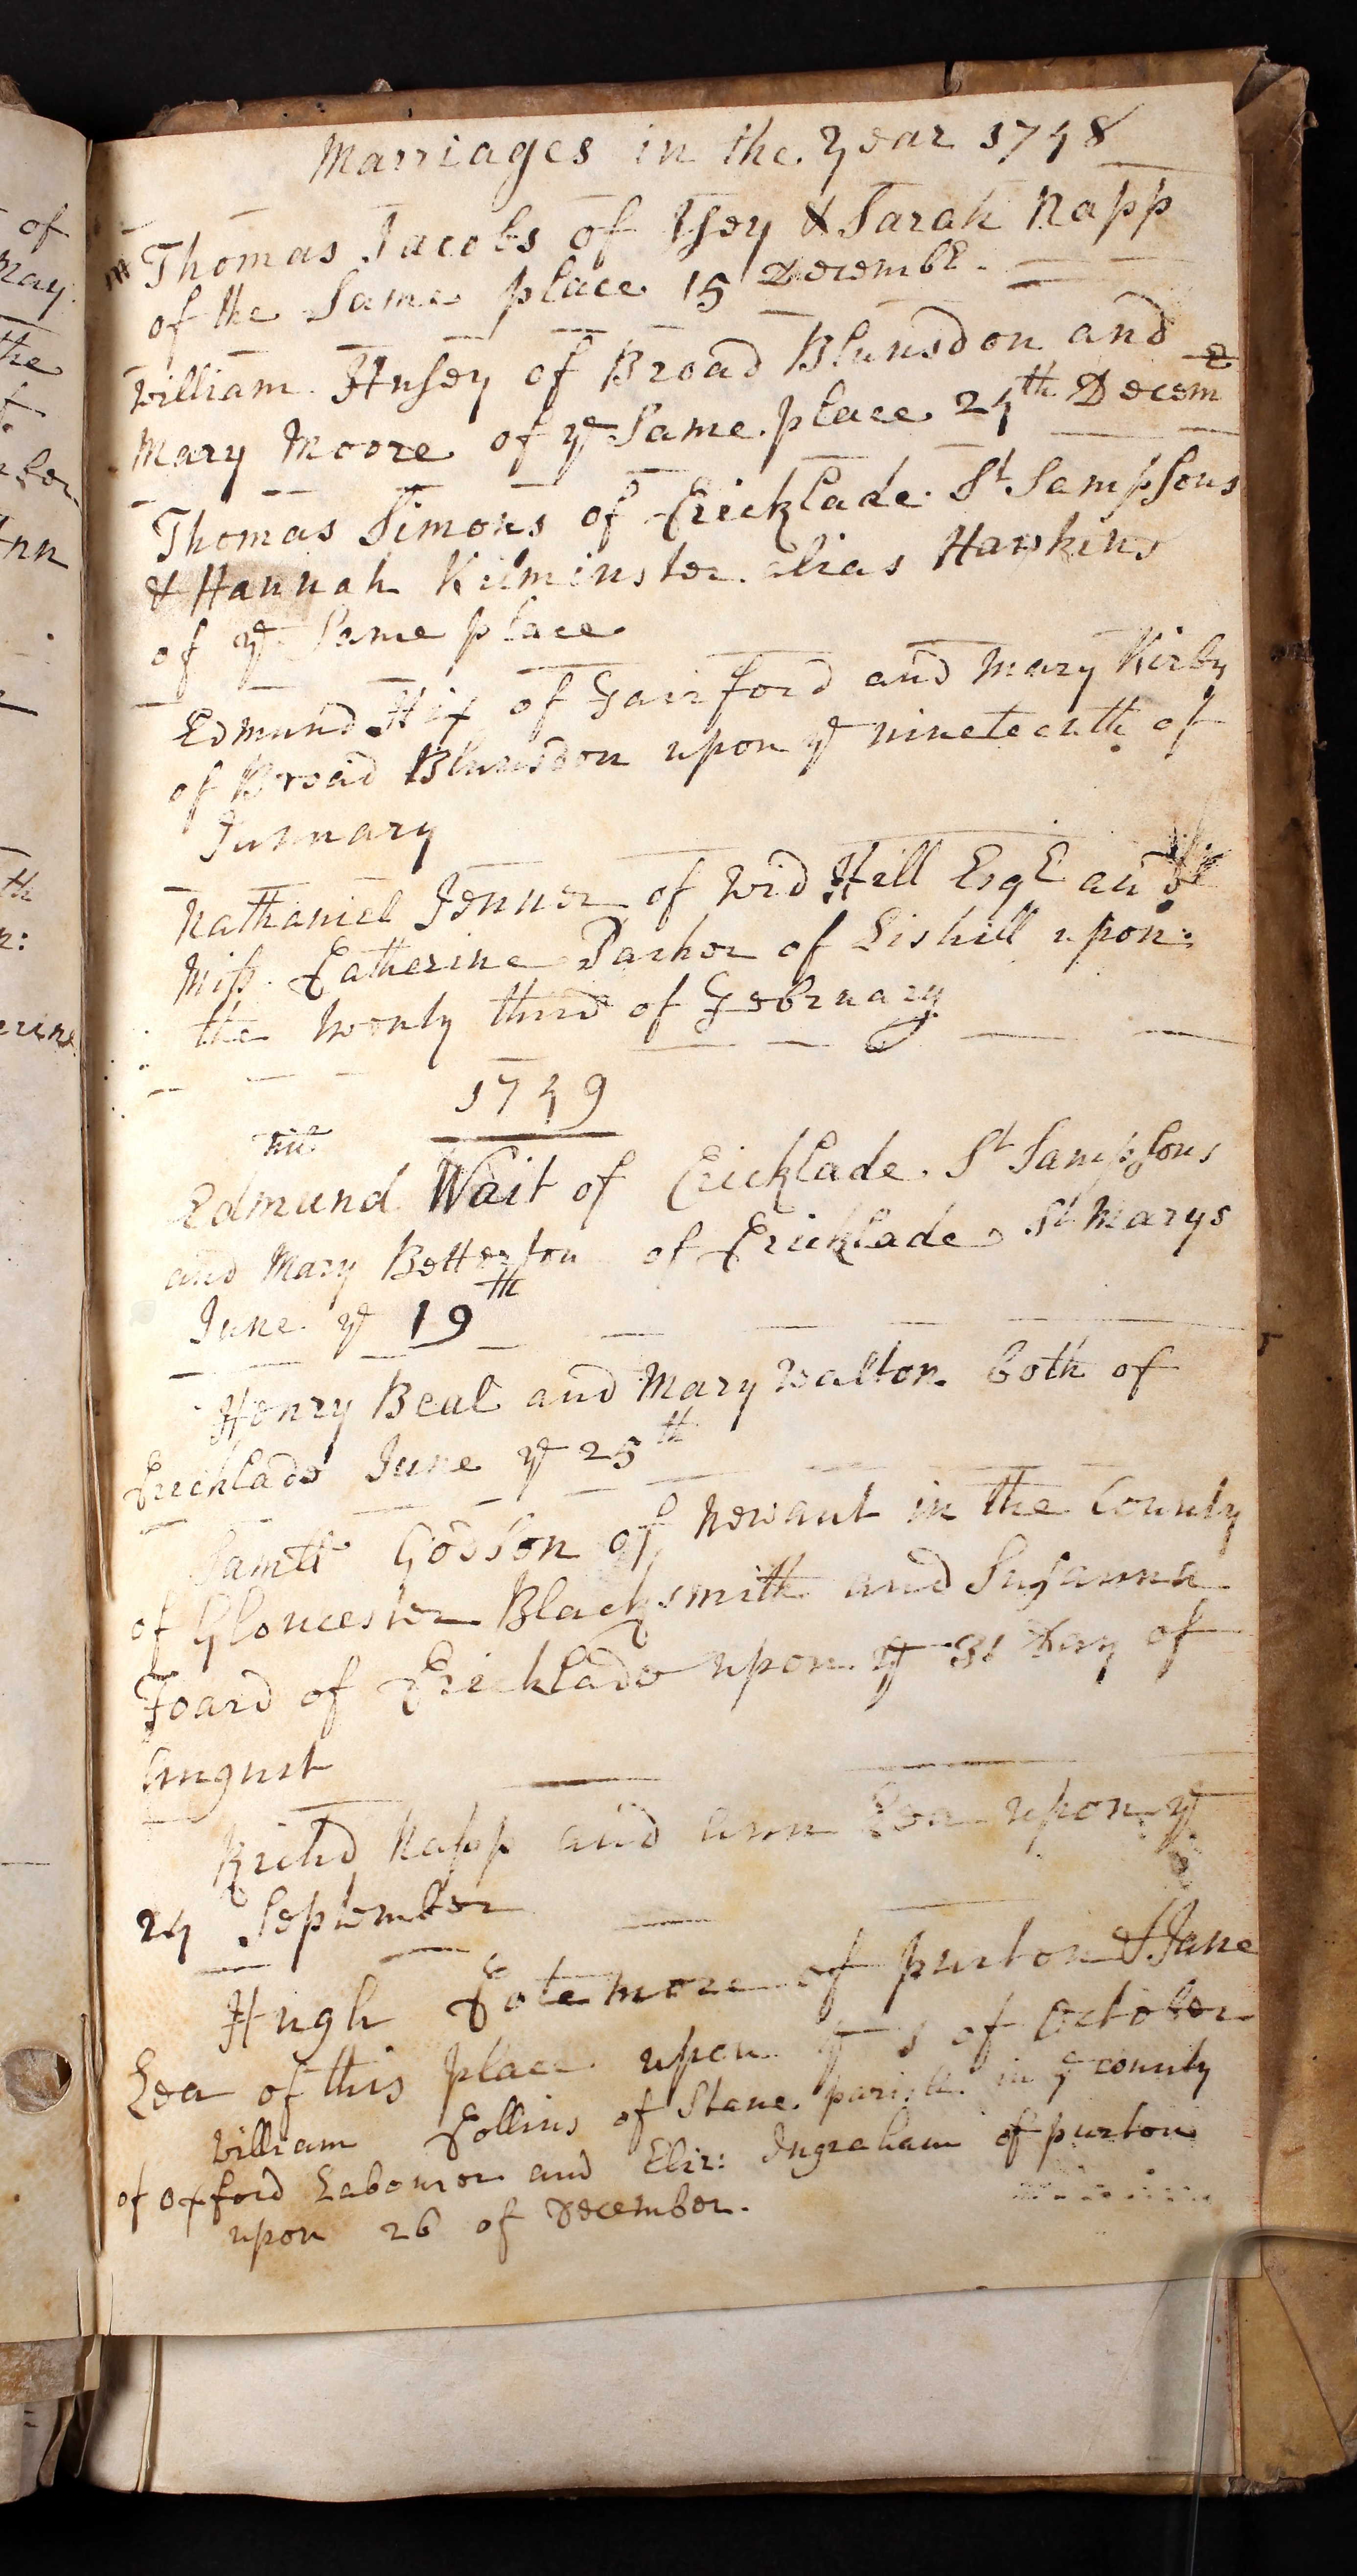 of
may
the
ber
Ann
th
r:
erine
Marriages in the Year 1748
Thomas Jacobs of Ysey & Sarah Napp
of the Same place 15 Decembr.
William Husey of Broad Blunsdon and
Mary Moore of ye Same place 24th Decemr
Thomas Simons of Cricklade St Sampsons
& Hannah Kilminster alias Hawkins
of ye Same place
Edmund Hix of Fairford and Mary Kirby
of Broad Blunsdon upon ye nineteenth of
Junnary
Nathaniel Jenner of Wid Hill Esqr and
Miss Catherine Parker of Lishill upon
the twenty third of February
1749
Edmund Wait of Cricklade St Sampsons
and Mary Betterton of Cricklade St Marys
June ye 19th
Henry Beal and Mary Walton both of
Cricklade June ye 25th
Samll Godson of Newant in the County
of Gloucester Blacksmith and Susanna
Foard of Cricklade upon ye 31 Day of
August
Richd Napp and Ann Lea upon ye
24 September
Hugh Cotemore of purton & Jane
Lea of this place upon ye 1 of October
William Collins of Stane parish in ye county
of Oxford Labourer and Eliz: Ingraham of purton
upon 26 of December.